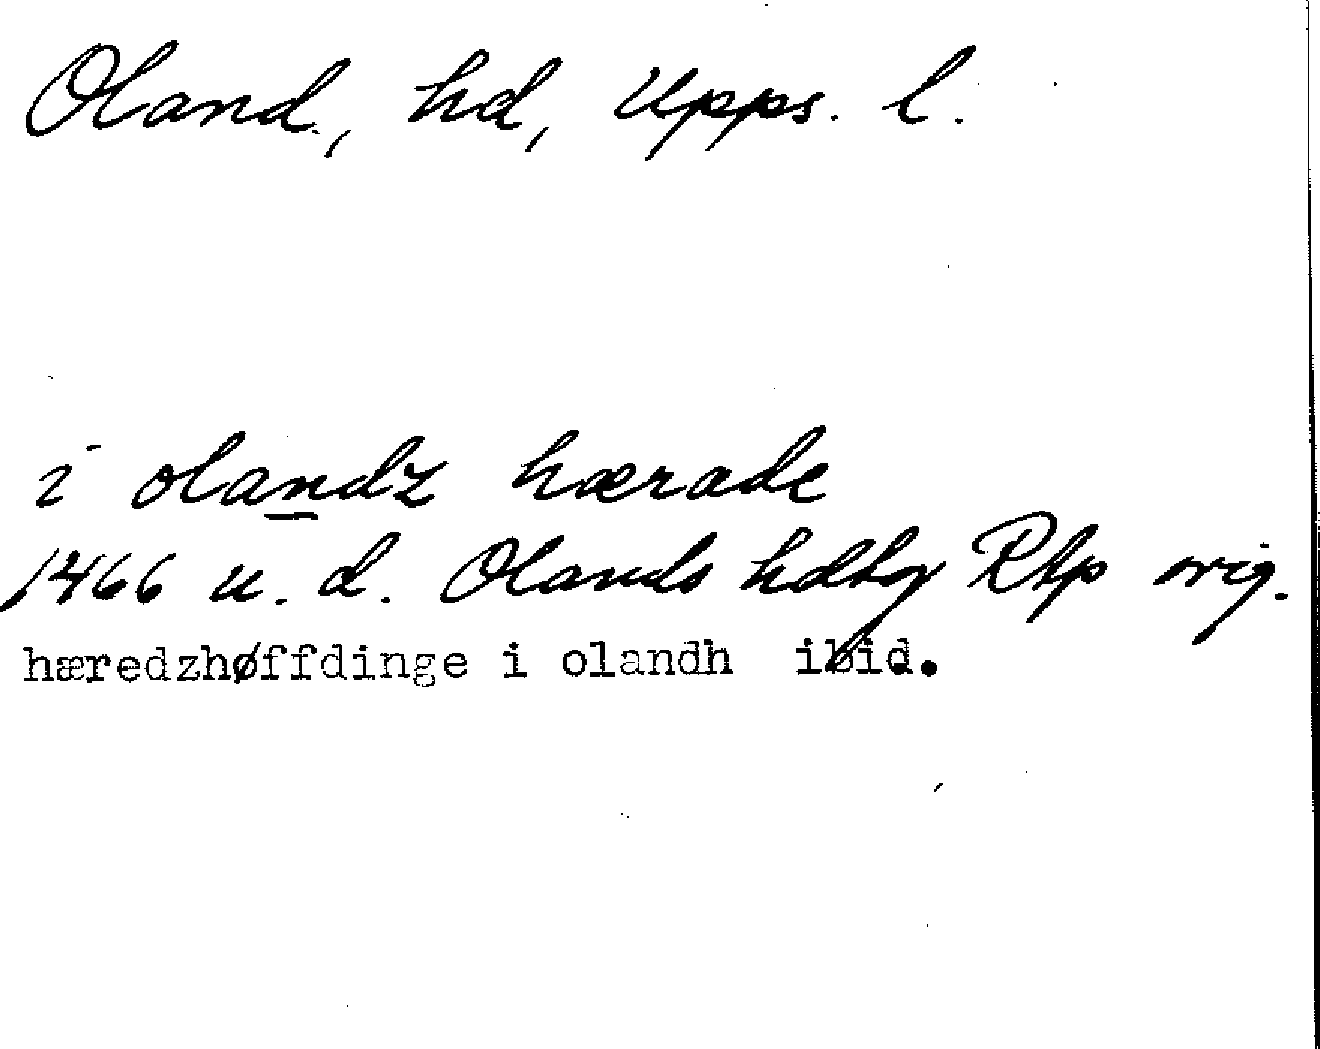 Oland, hd, Upps. l.
i olandz hærade
1466 u. d. Olands hdtg RAp orig.
hæredzhøffdinge i olandh ibid.